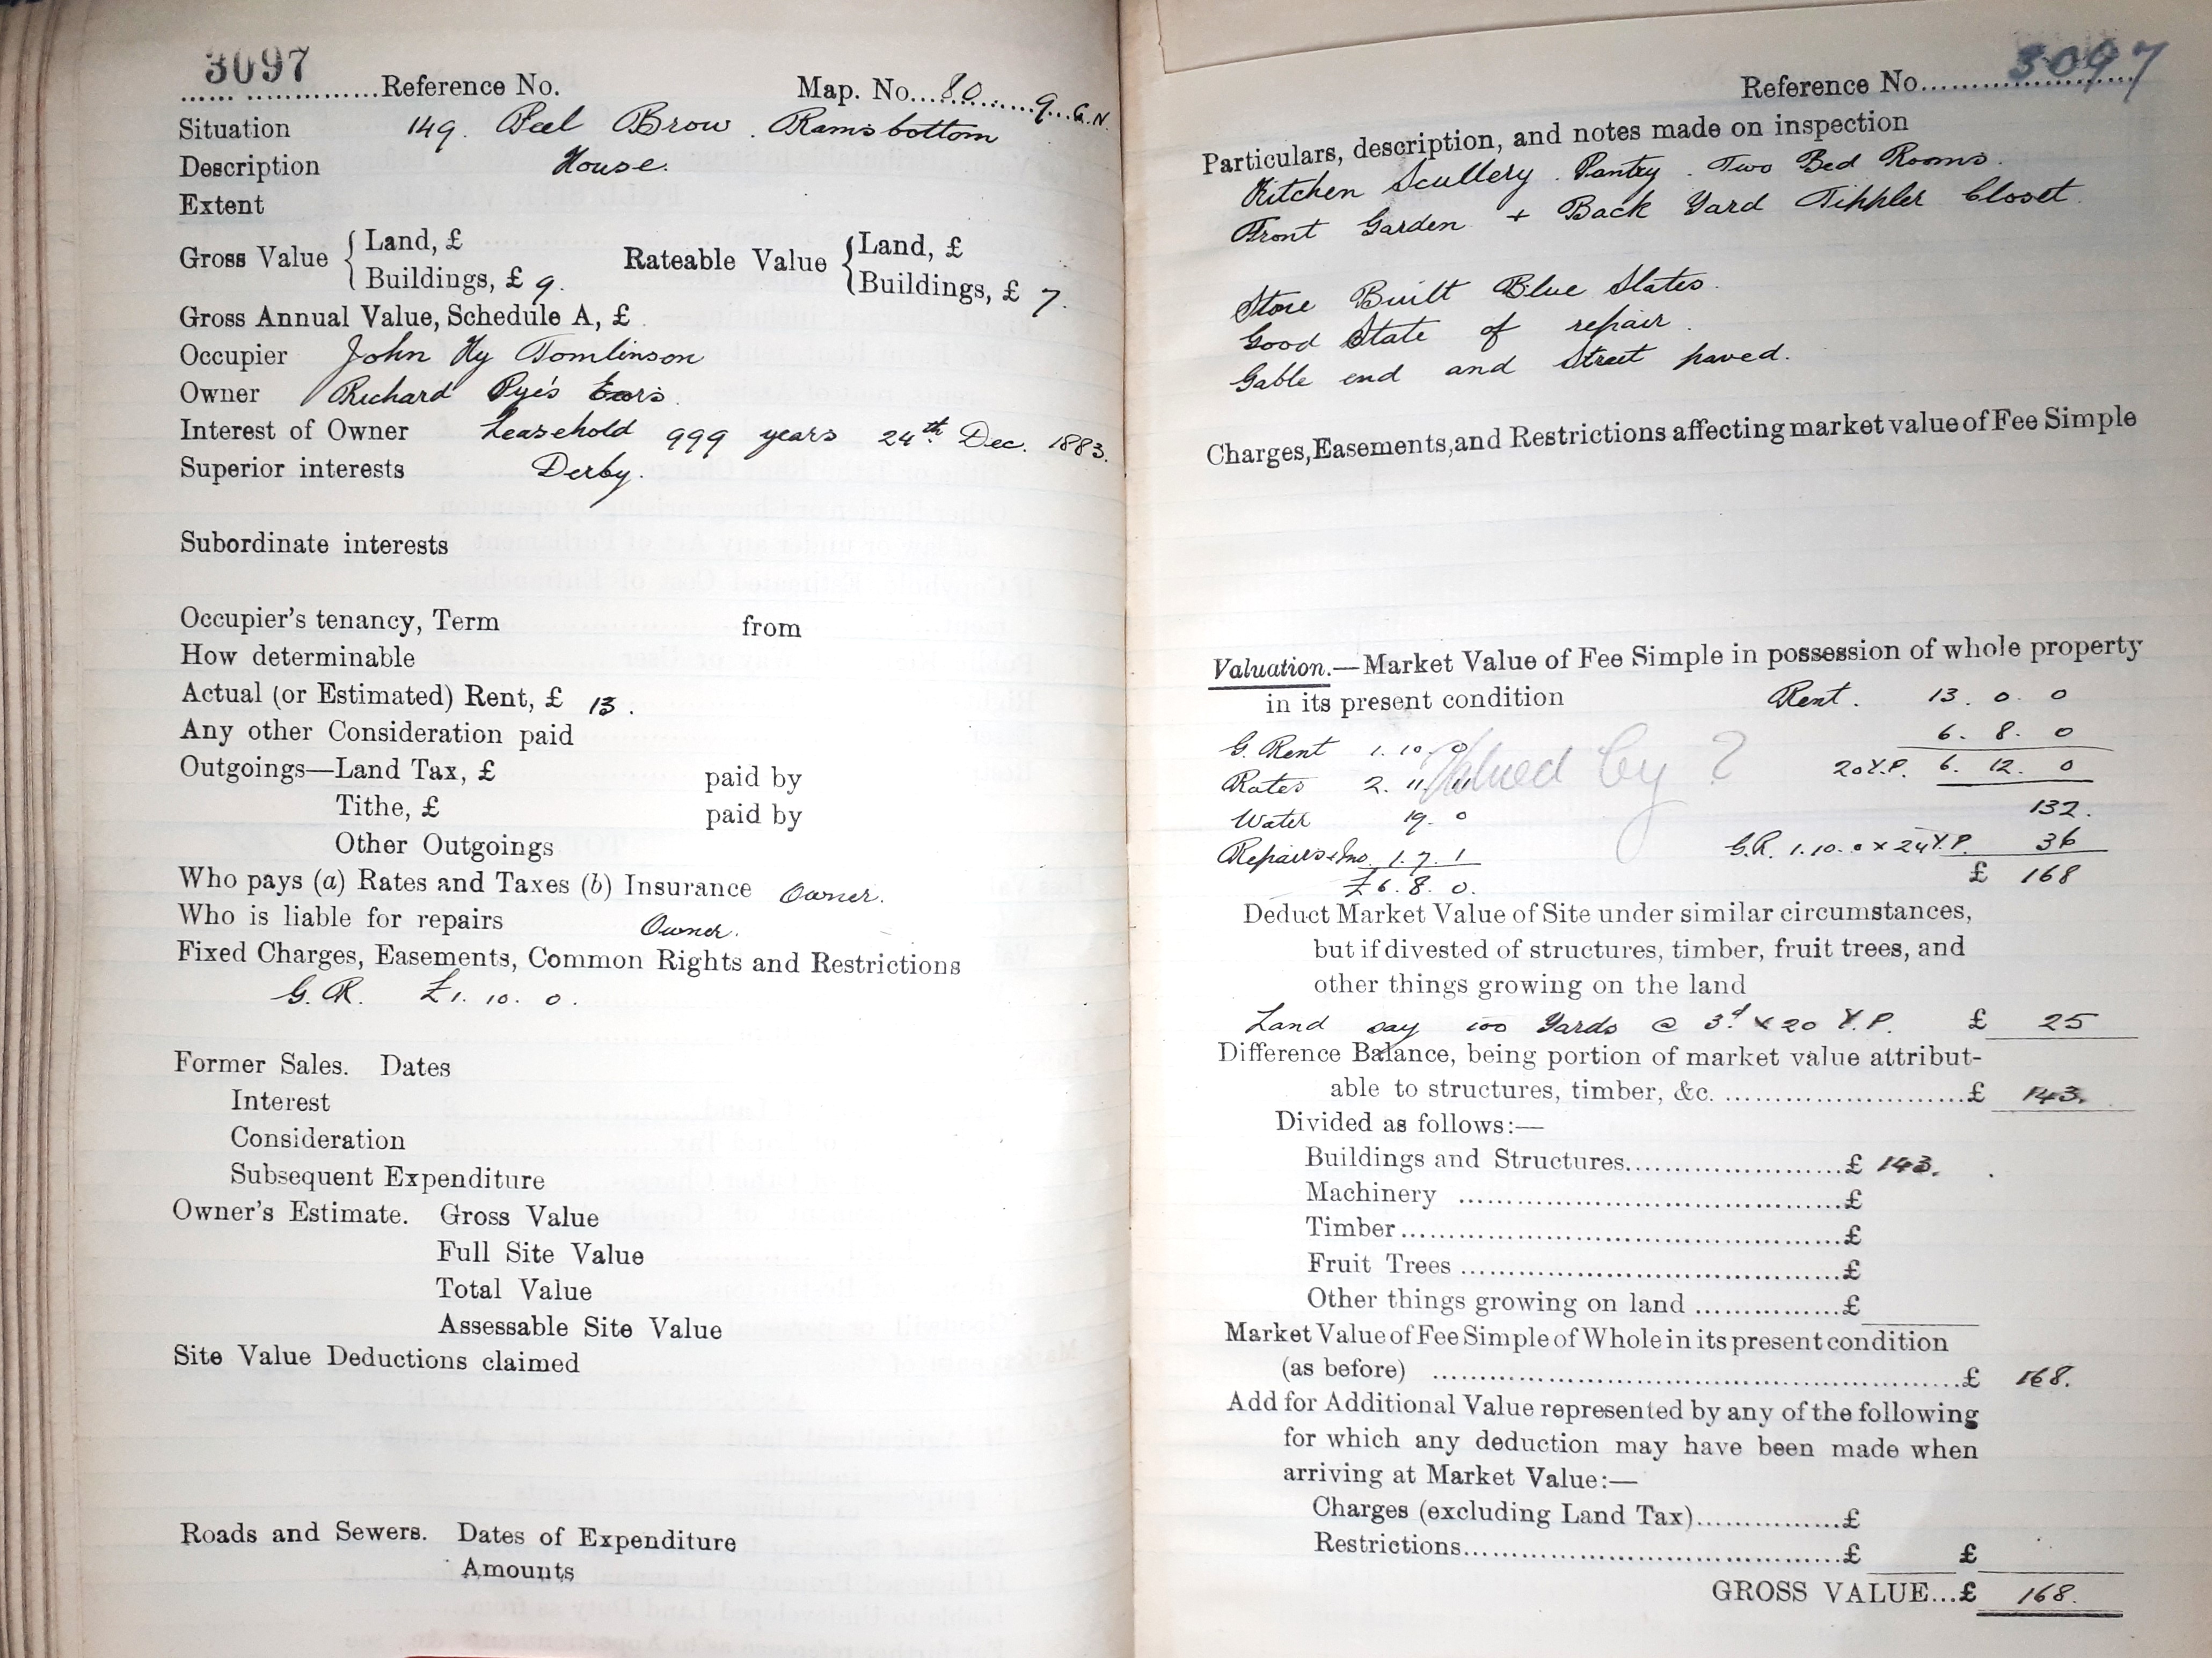 3097
Reference No. Map. No. 80 9 G.N.
Situation 149. Peel Brow. Ramsbottom
Description House.
Extent
Gross Value { Land, £ Rateable Value { Land, £
Buildings, £ 9. Buildings, £ 7.
Gross Annual Value, Schedule A, £
Occupier John Hy Tomlinson
Owner Richard Pye's Exors.
Interest of Owner Leasehold 999 years 24th Dec. 1883.
Superior interests Derby.
Subordinate interests
Occupier's tenancy, Term from
How determinable
Actual (or Estimated) Rent, £ 13.
Any other Consideration paid
Outgoings—Land Tax, £ paid by
Tithe, £ paid by
Other Outgoings
Who pays (a) Rates and Taxes (b) Insurance Owner.
Who is liable for repairs Owner.
Fixed Charges, Easements, Common Rights and Restrictions
G.R. £1. 10. 0.
Former Sales. Dates
Interest
Consideration
Subsequent Expenditure
Owner's Estimate. Gross Value
Full Site Value
Total Value
Assessable Site Value
Site Value Deductions claimed
Roads and Sewers. Dates of Expenditure
Amounts
Reference No. 3097
Particulars, description, and notes made on inspection
Kitchen Scullery. Pantry. Two Bed Rooms.
Front Garden + Back Yard Tippler Closet.
Stone Built Blue Slates.
Good State of repair.
Gable end and Street paved.
Charges, Easements, and Restrictions affecting market value of Fee Simple
Valuation.—Market Value of Fee Simple in possession of whole property
in its present condition Rent. 13. 0. 0
6. 8. 0
G. Rent 1. 10. 0 Valued by ? 20 Y.P. 6. 12. 0
Rates 2. 11. 11
132.
Water 19. 0
Repairs & Ins. 1. 7. 1 G.R. 1. 10. 0 x 24 Y.P. 36
£6. 8. 0. £ 168
Deduct Market Value of Site under similar circumstances,
but if divested of structures, timber, fruit trees, and
other things growing on the land
Land say 100 Yards @ 3d x 20 Y.P. £ 25
Difference Balance, being portion of market value attribut-
able to structures, timber, &c. £ 143.
Divided as follows:—
Buildings and Structures £ 143.
Machinery £
Timber £
Fruit Trees £
Other things growing on land £
Market Value of Fee Simple of Whole in its present condition
(as before) £ 168.
Add for Additional Value represented by any of the following
for which any deduction may have been made when
arriving at Market Value:—
Charges (excluding Land Tax) £
Restrictions £ £
GROSS VALUE...£ 168.